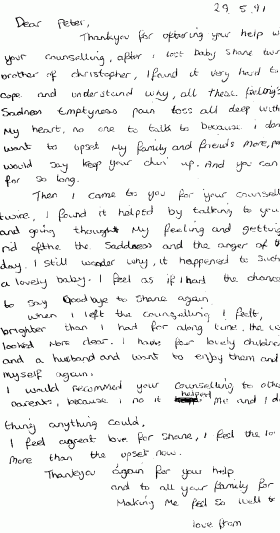 29.5.91
Dear Peter,
Thankyou for offering your help w
your counselling, after i lost baby Shane twin
brother of christopher, I found it very hard to
cope and understand why, all these feeling's
Sadness Emptyness pain loss all deep with
My heart, no one to talk to because i don
want to upset My family and friends More, peo
would say keep your chin up. And you can
for so long.
Then I came to you for your counsell
twice, I found it helped by talking to you
and going thought My feeling and getting
rid of the the Saddness and the anger of th
day. I still wonder why, it happened to such
a lovely baby. I feel as if I had the chance
to say Goodbye to Shane again.
when I left the counselling I felt,
brighter than I had for along time. the
looked More clear. I have four lovely children
and a husband and want to enjoy them and
Myself again.
I would recommed your Counselling to othe
parents, because i no it helped Me and I d
thing anything could,
I feel agreat love for Shane, I feel the lo
More than the upset now.
Thankyou again for you help
and to all your family for
Making Me feel so well to
love from